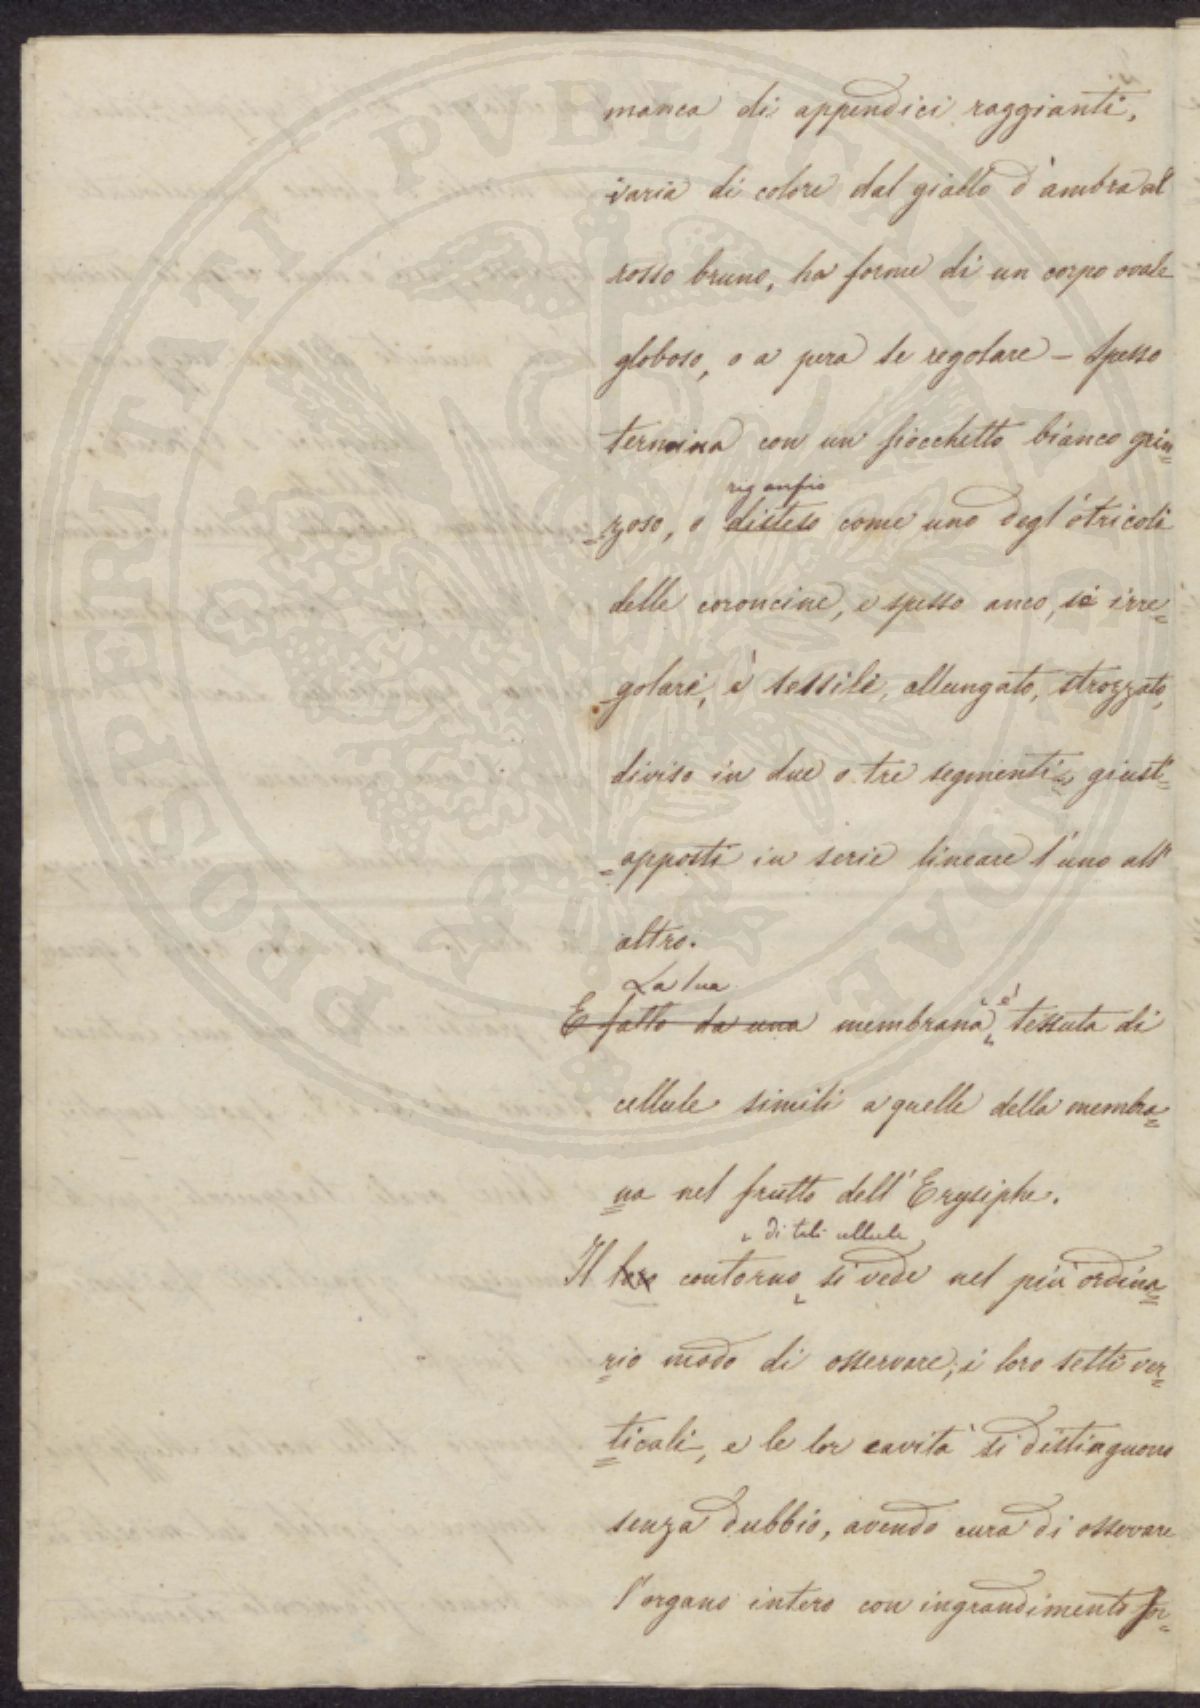 manca di appendici raggianti,
varia di colore dal giallo d'ambra al
rosso bruno, ha forme di un corpo ovale
globoso, o a pera se regolare – spesso
termina con un fiocchetto bianco grin=
rigonfio
=zoso, o disteso come uno degl'otricoli
delle coroncine, e spesso anco, se irre=
=golare, è sessile, allungato, strozzato,
diviso in due o tre segmenti, giust=
=apposti in serie lineare l'uno all'
altro.
La sua
E fatto da una membrana è tessuta di
cellule simili a quelle della membra=
na nel frutto dell'Erysiphe.
di tali cellule
Il loro contorno si vede nel più ordina=
rio modo di osservare; i loro setti ver=
ticali, e le lor cavità si distinguono
senza dubbio, avendo cura di osservare
l'organo intero con ingrandimento for=
PROSPERITATI PVBLICAE AVGENDAE